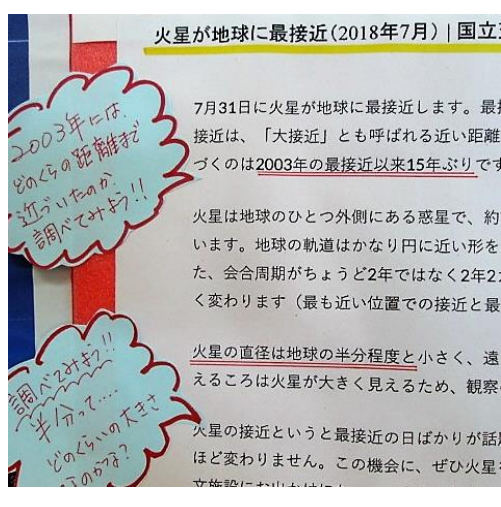 火星が地球に最接近(2018年7月)|国立
7月31日に火星が地球に最接近します。最
接近は、「大接近」とも呼ばれる近い距離
づくのは2003年の最接近以来15年ぶりです
火星は地球のひとつ外側にある惑星で、約
います。地球の軌道はかなり円に近い形を
た、会合周期がちょうど2年ではなく2年2
く変わります(最も近い位置での接近と最
火星の直径は地球の半分程度と小さく、遠
えるころは火星が大きく見えるため、観察
火星の接近というと最接近の日ばかりが話
ほど変わりません。この機会に、ぜひ火星
2003年には、
どのくらの距離まで
近づいたのか
調べてみよう!!
調べてみよう!!
半分って....
どのくらいの大きさ
なのかな?